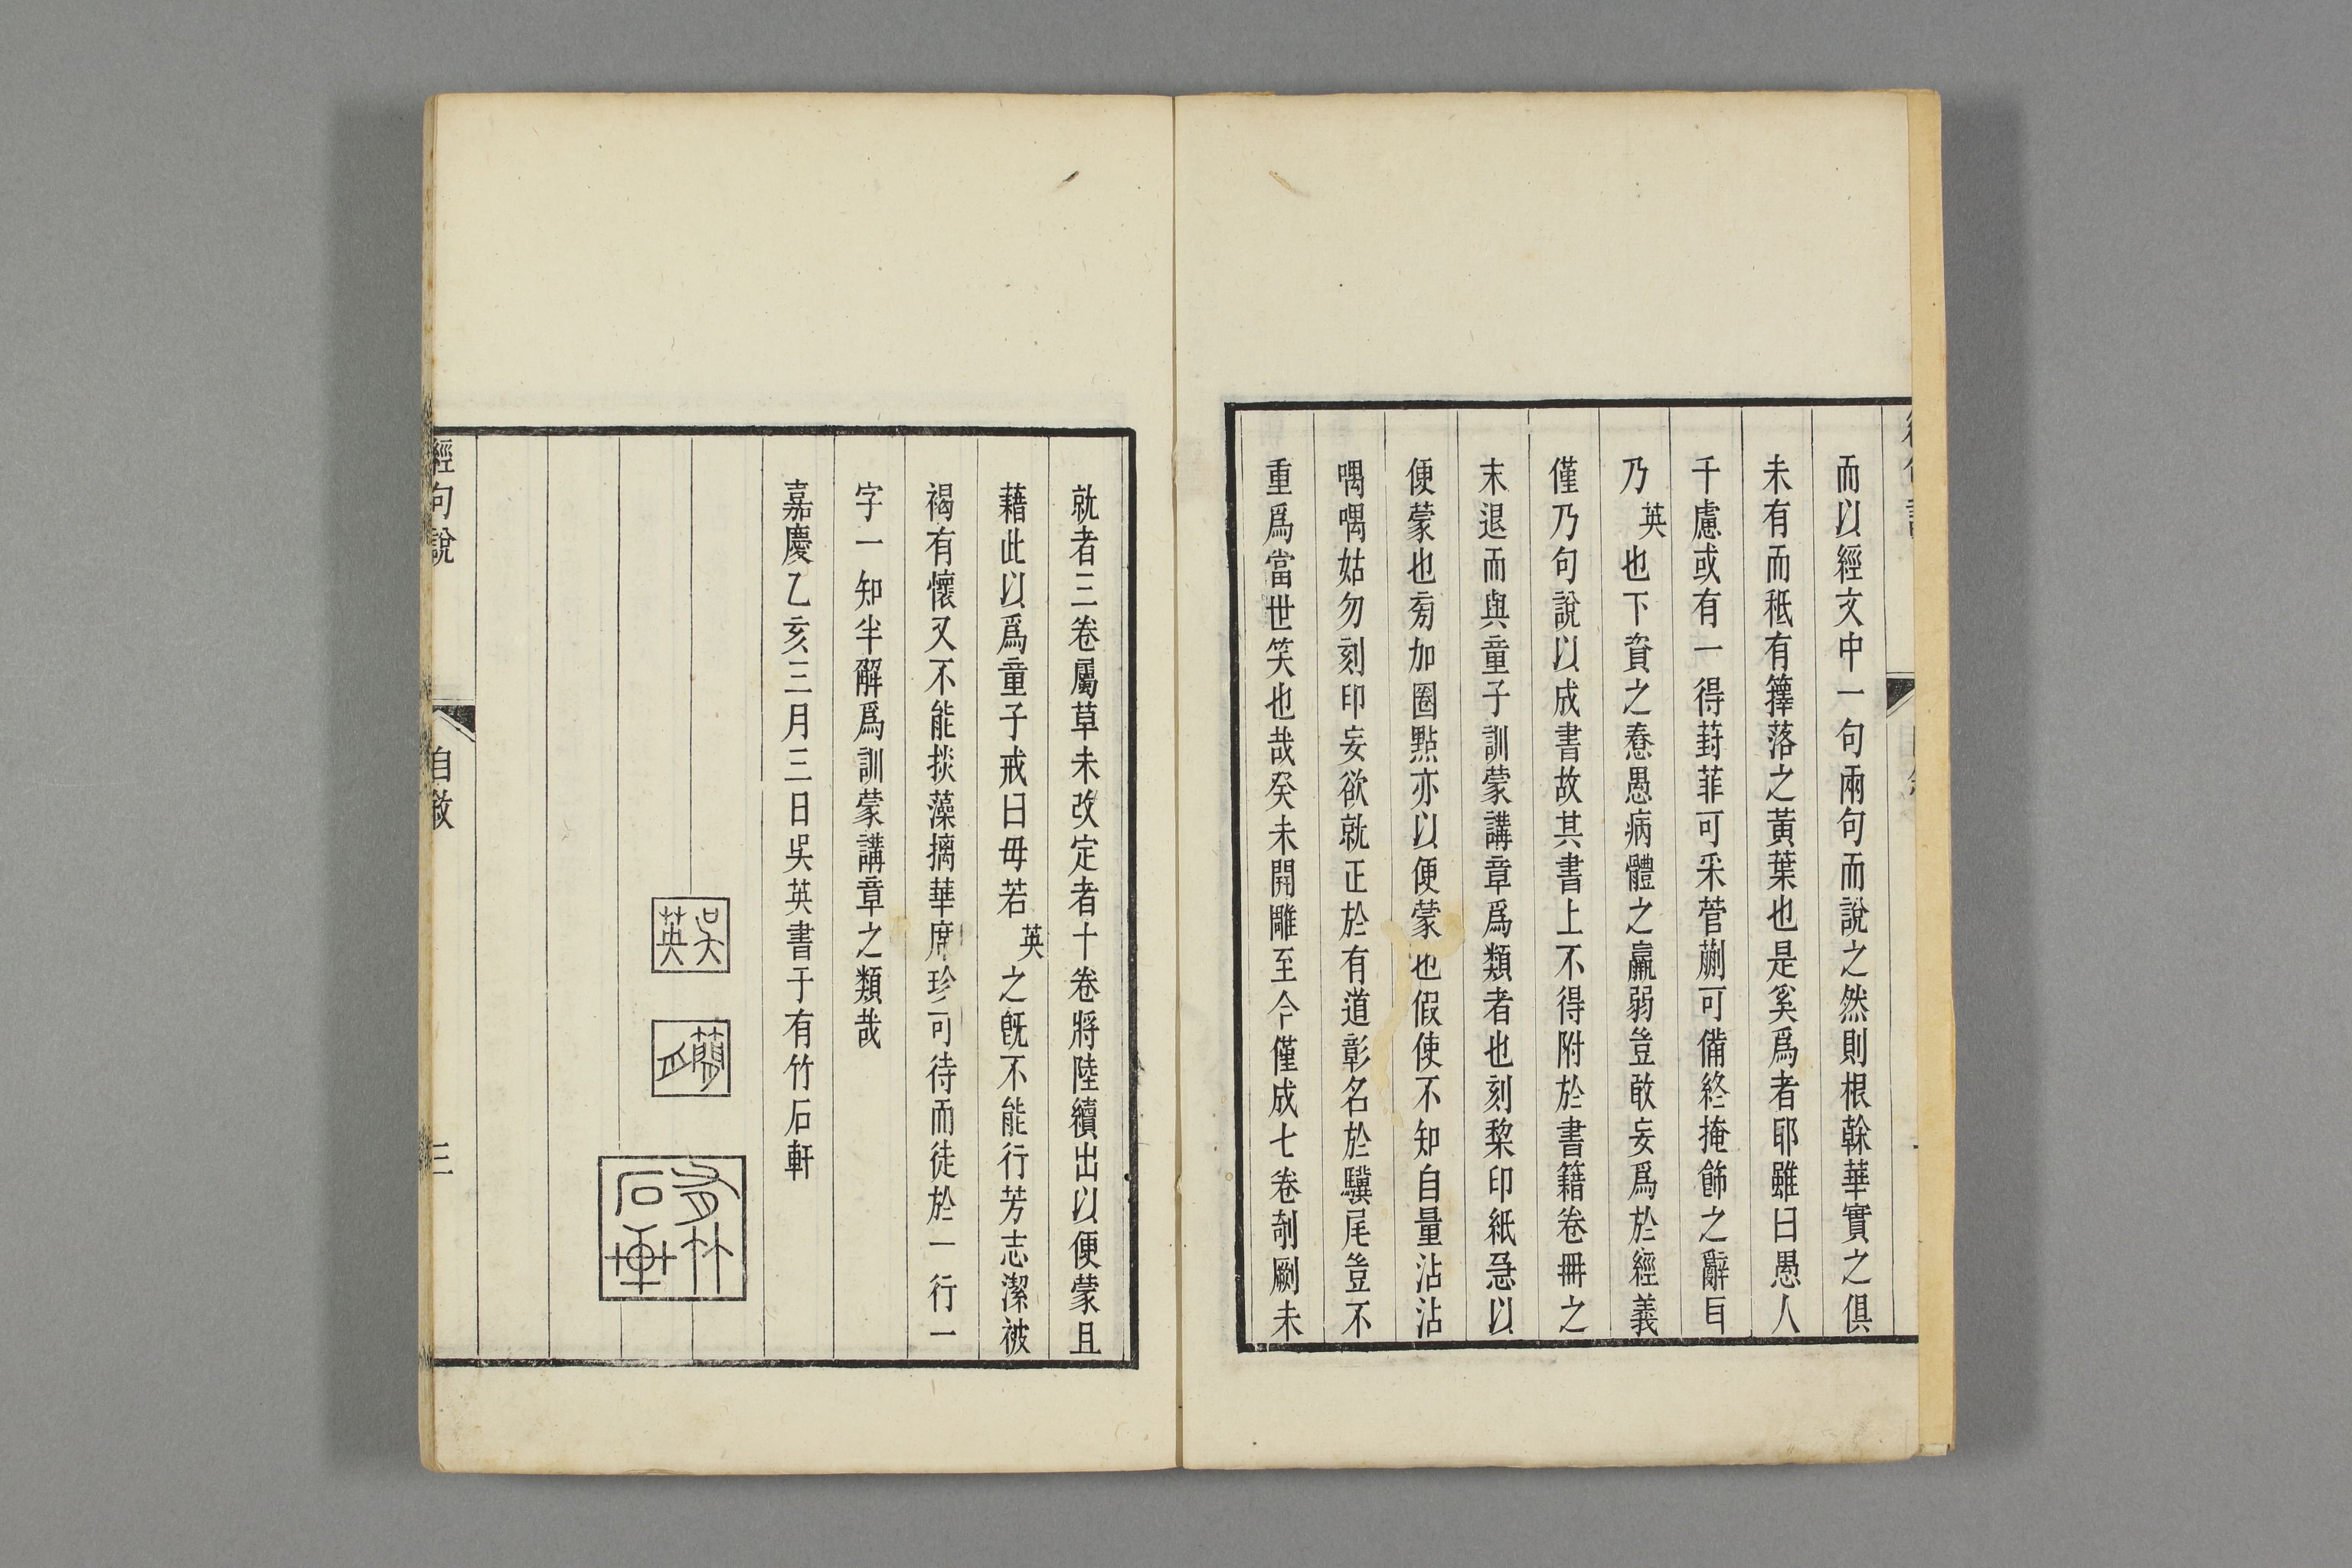 而以經文中一句兩句而說之然則根榦華實之俱
未有而秖有籜落之黃葉也是奚爲者耶雖曰愚人
千慮或有一得葑菲可采菅蒯可備終掩飾之辭㠯
乃英也下資之惷愚病體之羸弱豈敢妄爲於經義
僅乃句說以成書故其書上不得附於書籍卷冊之
末退而與童子訓蒙講章爲類者也刻棃印紙急以
便蒙也旁加圈點亦以便蒙也假使不知自量沾沾
喁喁姑勿刻印妄欲就正於有道彰名於驥尾豈不
重爲當世笑也哉癸未開雕至今僅成七卷剞劂未
就者三卷屬草未改定者十卷將陸續出以便蒙且
藉此以爲童子戒曰毋若英之旣不能行芳志潔被
褐有懷又不能掞藻摛華席珍可待而徒於一行一
字一知半解爲訓蒙講章之類哉
嘉慶乙亥三月三日吳英書于有竹石軒
吳英
有竹石軒
經句說
自敘
三